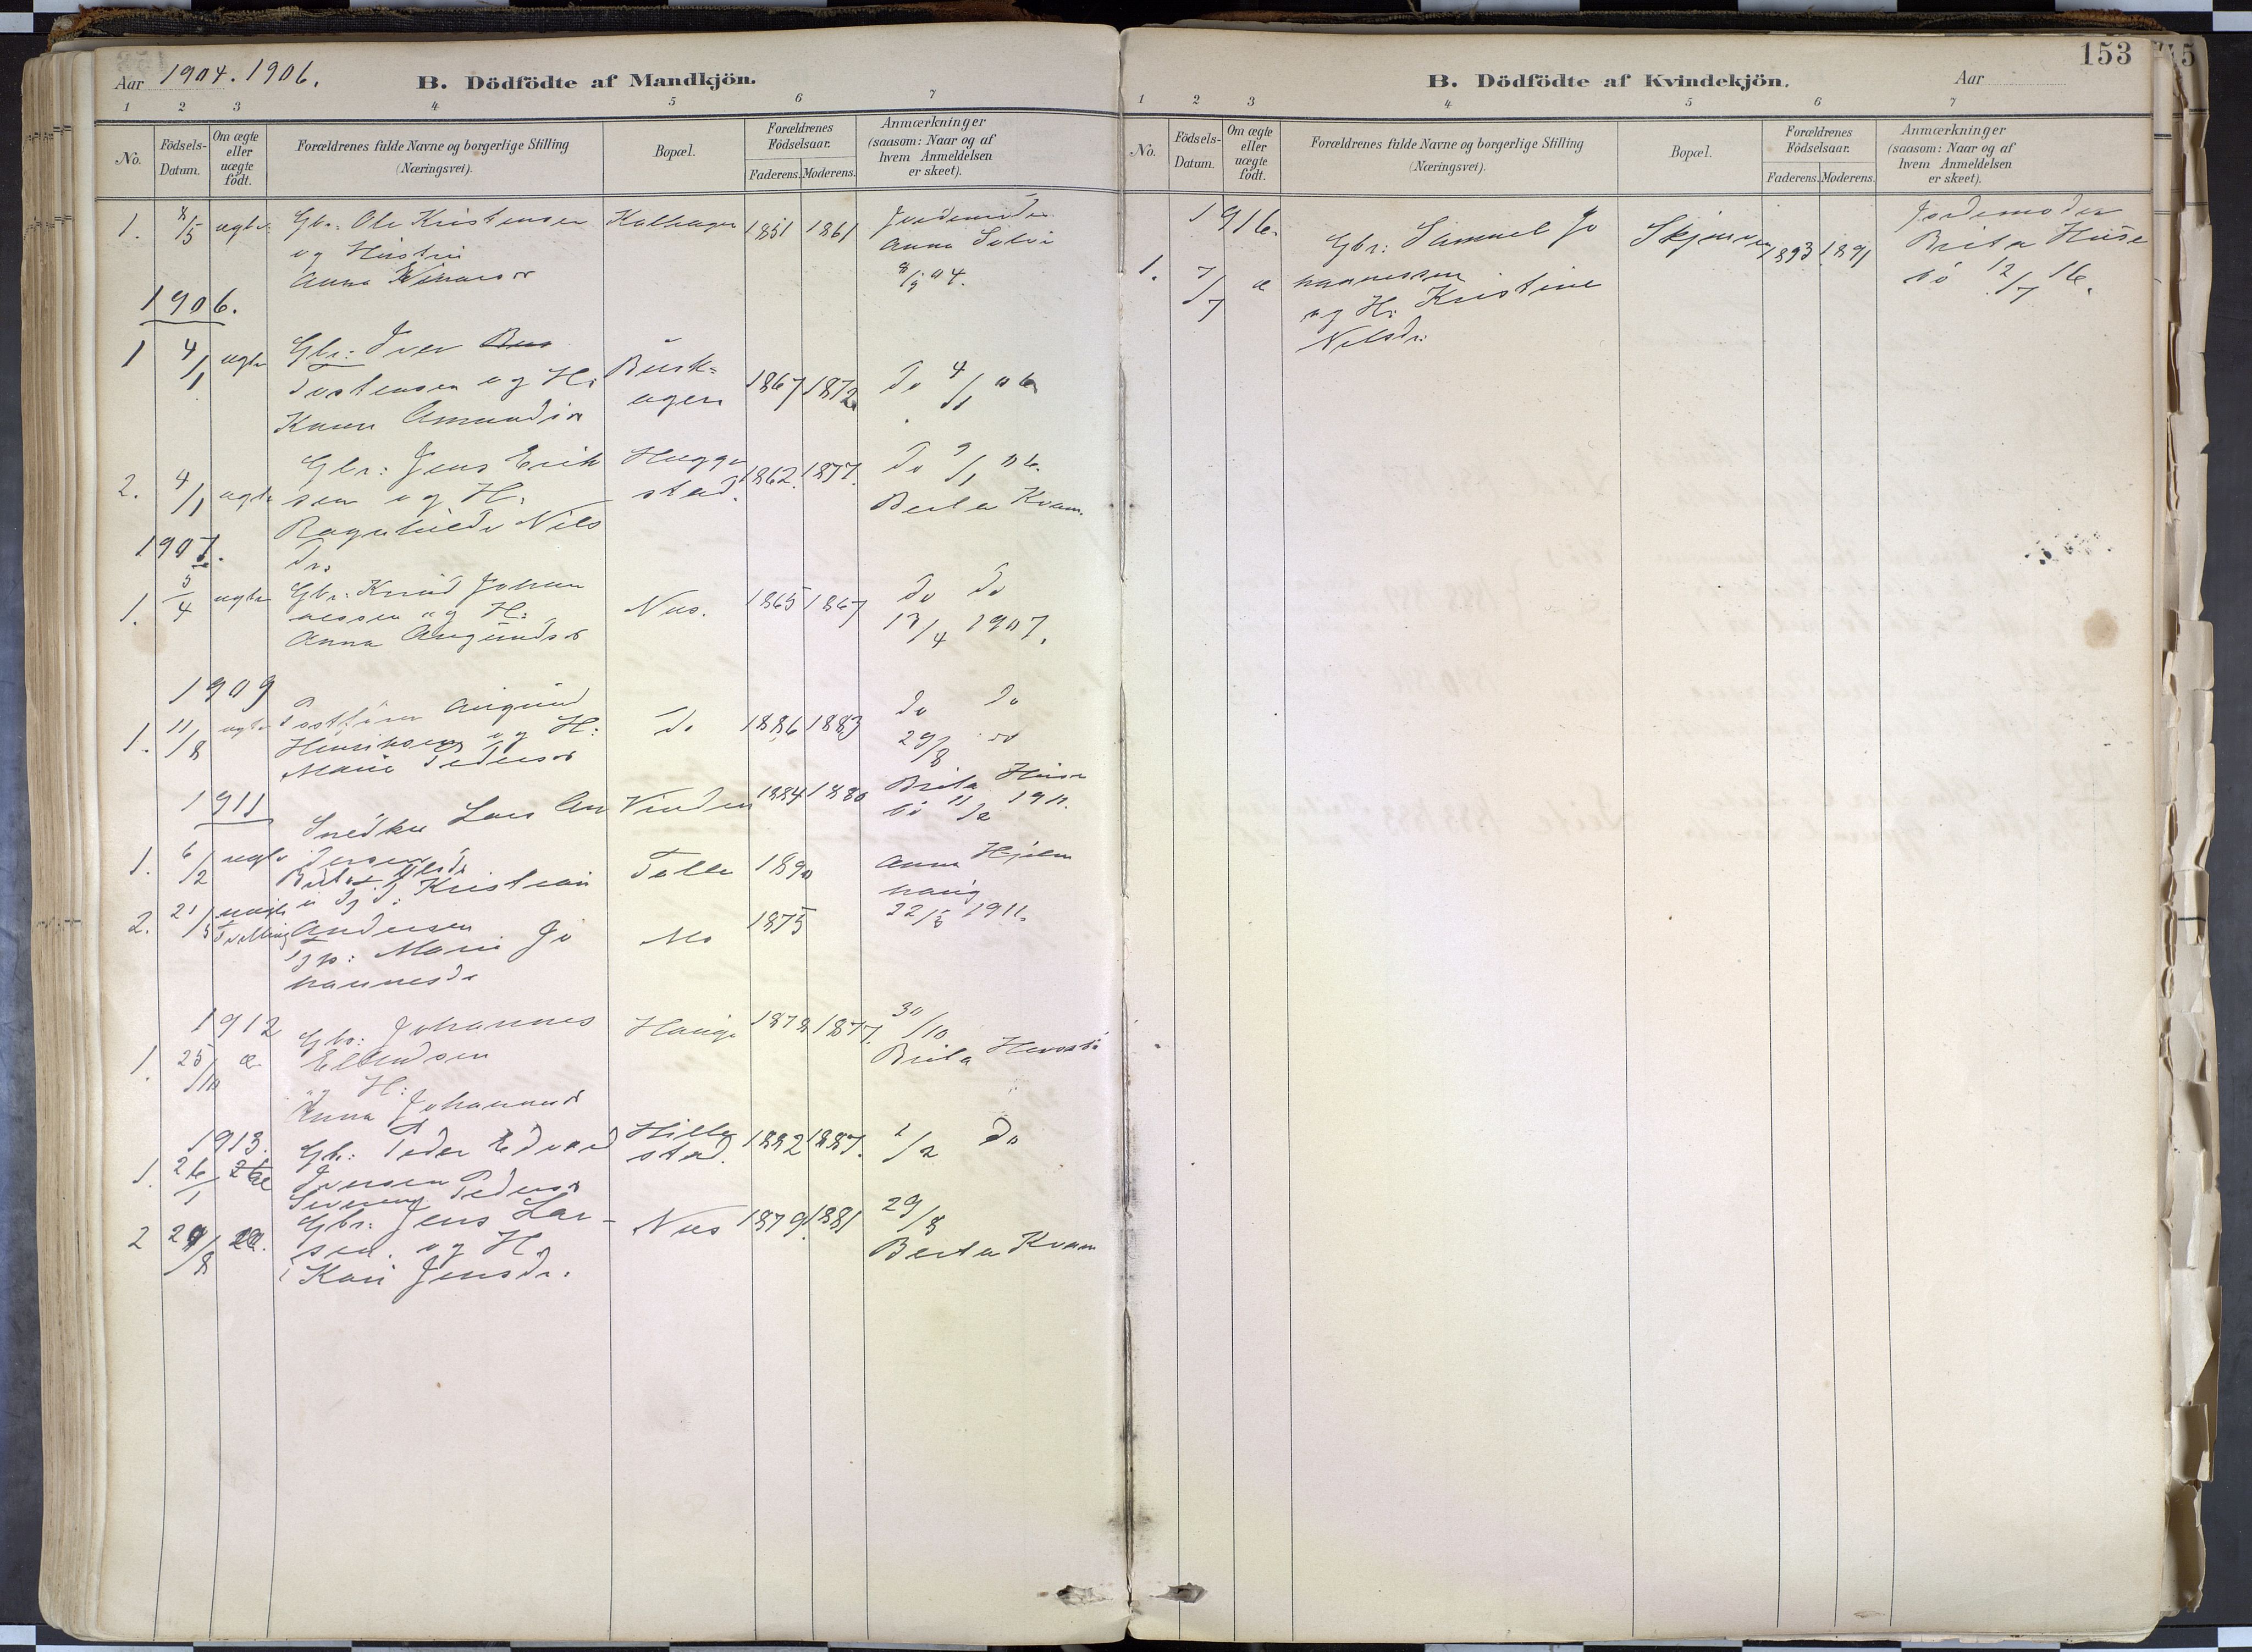 Aar 1904. 1906. B. Dödfödte af Mandkjön.
1 2 3 4 5 6 7
No. Födsels-Datum. Om ægte eller uægte födt. Forældrenes fulde Navne og borgerlige Stilling (Næringsvei). Bopæl. Forældrenes Födselsaar. Faderens. Moderens. Anmærkninger (saasom: Naar og af hvem Anmeldelsen er skeet).
1. 8/5 ægte Gbr: Ole Kristensen Kalhagen 1851 1861 Jordemoder
og Hustru Anna Solvi
Anna 8/5 04.
1906.
1 4/1 ægte Gbr: Iver
Tostensen og H: Busk= 1867 1872 Do 4/1 06
Karen Amundsdr ageren
2. 4/1 ægte Gbr: Jens Erik Hegge 1862. 1877. Do 9/1 06.
sen og H. stad. Berta Kvam.
Ragnhilde Nils
dr.
1907.
1. 5/4 ægte Gbr: Knud Johan Nes. 1865 1867 do do
nessen og H: 13/4 1907.
Anna Augundsdr
1909
1. 11/8 ægte Postfører Augund do 1886 1883 do do
Henriksen og H: 29/8
Marie Pedersdr
1911
Snedker Lars An Vinden 1884 1880 Brita Huse
1. 6/2 ægte dersen bö 11/2 1911.
Brita Olsdr
2. 21/5 uægte Tvilling Kristian Talle 1890 Anna Hjelm
Andersen haug
Marie Jo Mo 1875 22/5 1911.
hannesdr
1912
1. 25/10 æ Gbr: Johannes Hauge 1878 1877. 30/10
Ellendsen Brita Husebö
H:
Anna Johannesdr
1913.
1. 26/1 æ Gbr: Peder Edvard Hille 1882 1887. 1/2 do
Iversen stad.
Severine Pedersdr
2 29/8 æ. Gbr: Jens Lar- Nes 1879. 1881 29/8
sen. og H. Berta Kvam
Kari Jensdr.
153
B. Dödfödte af Kvindekjön. Aar
1 2 3 4 5 6 7
No. Födsels-Datum. Om ægte eller uægte födt. Forældrenes fulde Navne og borgerlige Stilling (Næringsvei). Bopæl. Forældrenes Födselsaar. Faderens. Moderens. Anmærkninger (saasom: Naar og af hvem Anmeldelsen er skeet).
1916.
1. 7/7 æ Gbr: Samuel Jo 1893 1891 Jordemoder
hannessen Brita Huse
og H: Kristine bö 12/7 16.
Nilsdr: